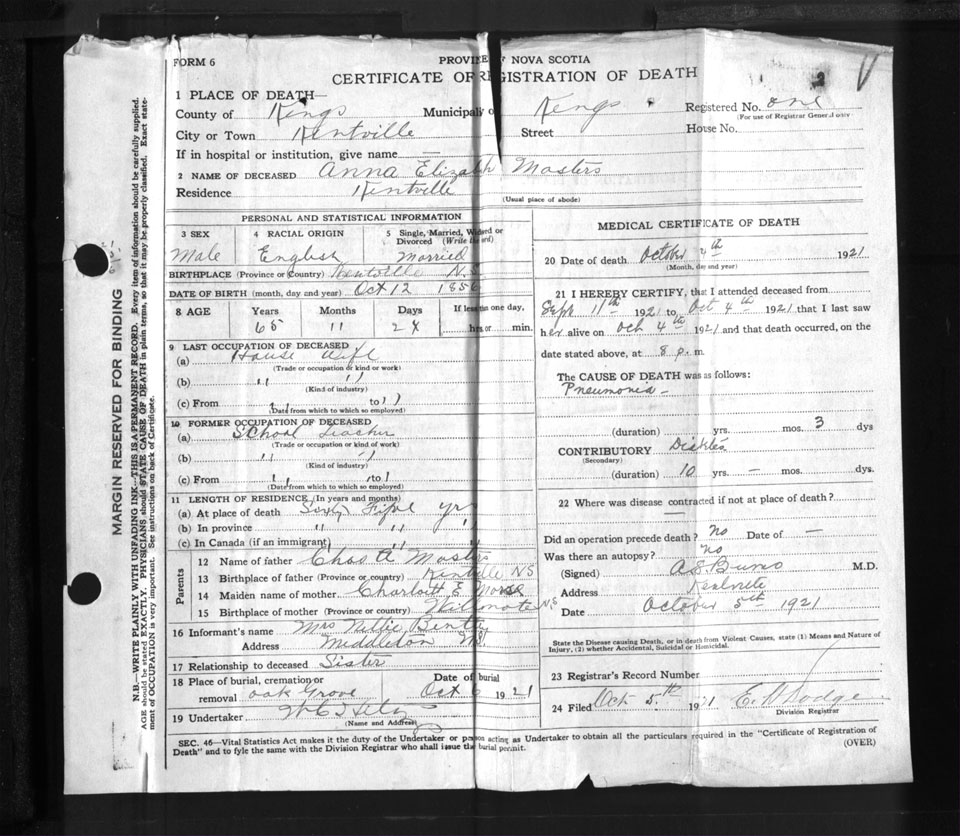 FORM 6
PROVINCE OF NOVA SCOTIA
CERTIFICATE OF REGISTRATION OF DEATH
1 PLACE OF DEATH—
County of Kings Municipality of Kings Registered No. one
(For use of Registrar General only)
City or Town Kentville Street House No.
If in hospital or institution, give name —
2 NAME OF DECEASED Anna Elizabeth Masters
Residence Kentville
(Usual place of abode)
PERSONAL AND STATISTICAL INFORMATION
3 SEX 4 RACIAL ORIGIN 5 Single, Married, Widowed or Divorced (Write the word)
Male English Married
BIRTHPLACE (Province or Country) Kentville N.S
DATE OF BIRTH (month, day and year) Oct 12 1856
8 AGE Years Months Days If less than one day,
65 11 2 hrs or min.
9 LAST OCCUPATION OF DECEASED
(a) House Wife
(Trade or occupation or kind or work)
(b) " "
(Kind of industry)
(c) From " to "
(Date from which to which so employed)
10 FORMER OCCUPATION OF DECEASED
(a) School Teacher
(Trade or occupation or kind or work)
(b) " "
(Kind of industry)
(c) From " to "
(Date from which to which so employed)
11 LENGTH OF RESIDENCE (In years and months)
(a) At place of death Sixty Five yr
(b) In province " " "
(c) In Canada (if an immigrant) " " "
Parents
12 Name of father Chas A Masters
13 Birthplace of father (Province or country) Kentville NS
14 Maiden name of mother Charlott E Morse
15 Birthplace of mother (Province or country) Wilmote N.S
16 Informant's name Mrs Nellie Bently
Address Middleton N.S.
17 Relationship to deceased Sister
18 Place of burial, cremation or removal Oak Grove Date of burial Oct 6 1921
19 Undertaker
(Name and Address)
MEDICAL CERTIFICATE OF DEATH
20 Date of death October 4th 1921
(Month, day and year)
21 I HEREBY CERTIFY, that I attended deceased from
Sept 11th 1921 to Oct 4th 1921 that I last saw
her alive on Oct 4th 1921 and that death occurred, on the
date stated above, at 8 p.m
The CAUSE OF DEATH was as follows:
Pneumonia —
(duration) yrs. mos. 3 dys
CONTRIBUTORY
(Secondary)
(duration) 10 yrs. — mos. dys.
22 Where was disease contracted if not at place of death?
—
Did an operation precede death? No Date of —
Was there an autopsy? No
(Signed) M.D.
Address
Date October 5th 1921
State the Disease causing Death, or in death from Violent Causes, state (1) Means and Nature of
Injury, (2) whether Accidental, Suicidal or Homicidal.
23 Registrar's Record Number
24 Filed Oct 5th 1921 E. H Dodge
Division Registrar
SEC. 46—Vital Statistics Act makes it the duty of the Undertaker or person acting as Undertaker to obtain all the particulars required in the "Certificate of Registration of
Death" and to fyle the same with the Division Registrar who shall issue the burial permit.
(OVER)
MARGIN RESERVED FOR BINDING
N.B.—WRITE PLAINLY WITH UNFADING INK—THIS IS A PERMANENT RECORD. Every item of information should be carefully supplied.
AGE should be stated EXACTLY. PHYSICIANS should STATE CAUSE OF DEATH in plain terms, so that it may be properly classified. Exact state-
ment of OCCUPATION is very important. See instructions on back of Certificate.